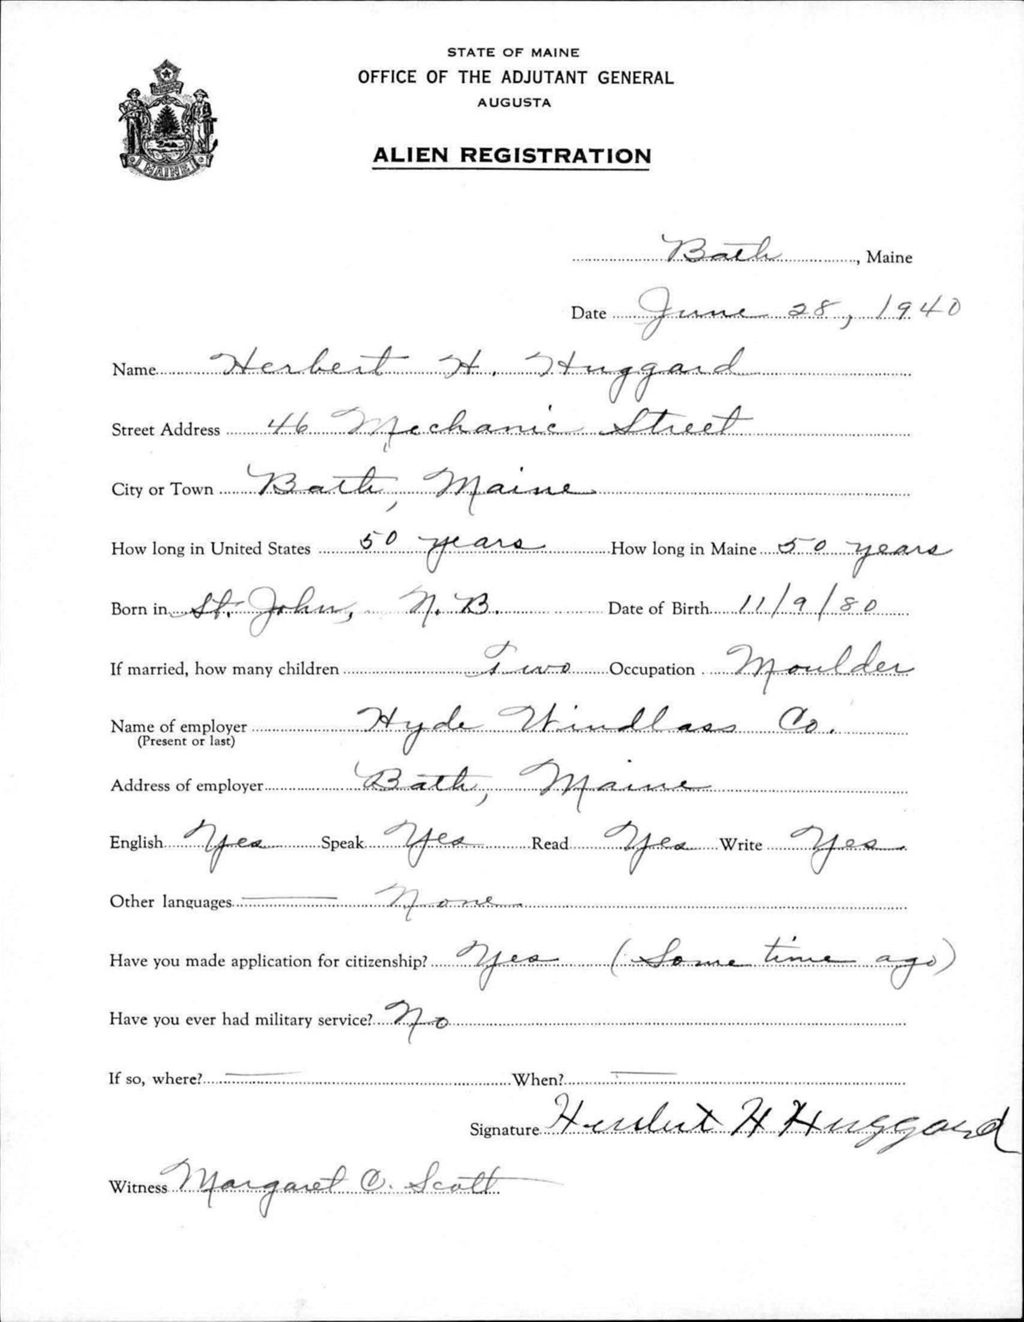 STATE OF MAINE
OFFICE OF THE ADJUTANT GENERAL
AUGUSTA
ALIEN REGISTRATION
MAINE
Bath, Maine
Date June 28, 1940
Name Herbert H. Huggard
Street Address 46 Mechanic Street
City or Town Bath, Maine
How long in United States 50 years How long in Maine 50 years
Born in St. John, N.B. Date of Birth 11/9/80
If married, how many children Two Occupation Moulder
Name of employer Hyde Windlass Co.
(Present or last)
Address of employer Bath, Maine
English Yes Speak Yes Read Yes Write Yes
Other languages None
Have you made application for citizenship? Yes (Some time ago)
Have you ever had military service? No
If so, where? — When? —
Signature Herbert H Huggard
Witness Margaret C. Scott